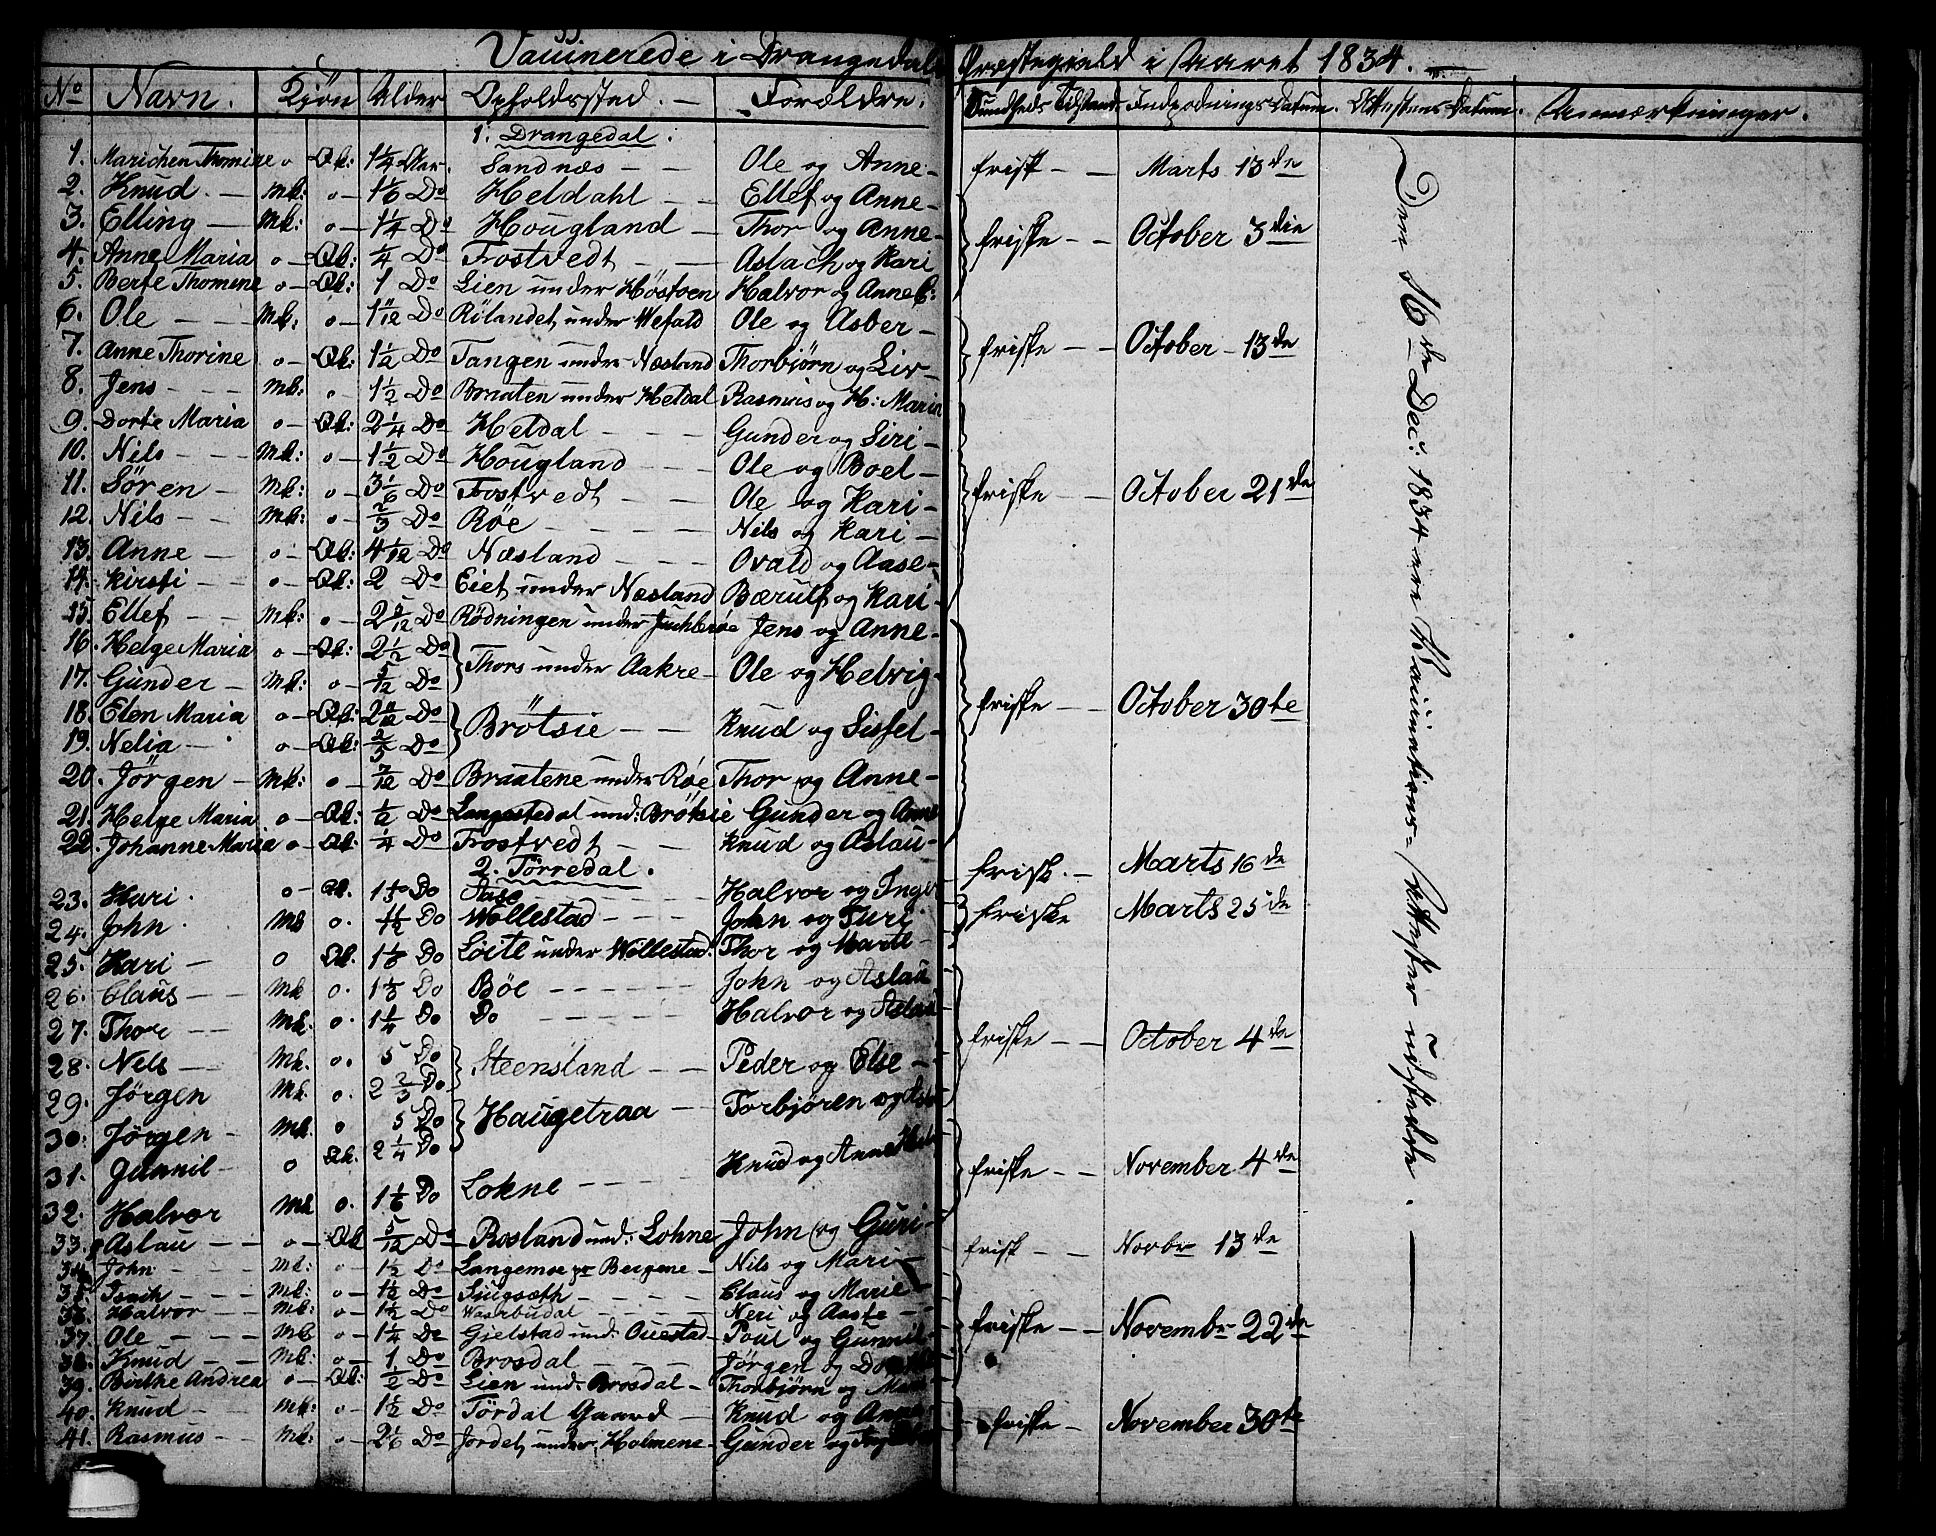 Vaccinerede i Drangedals Præstegield i Aaret 1834.
No Navn. Kjön Alder Opholdsstad. Forældre. Sundheds Tilstand Indpodnings-Datum. Attestens Datum. Anmærkninger.
1. Drangedal.
1. Marichen Thomine o Qk: 1 1/4 Aar. Sandnæs Ole og Anne frisk Marts 13de
2. Knud Mk: o 1 1/6 Do Heldahl Ellef og Anne
3. Elling Mk: o 1 1/4 Do Hougland Thor og Anne friske October 3die
4. Anne Maria o Qk: 1/4 Do Frostvedt Aslach og Kari
5. Berte Thomine o Qk: 1 Do Lien under Höstoen Halvor og Anne
6. Ole Mk: o 1 11/12 Do Rölandet under Wefald Ole og Asber
7. Anne Thorine o Qk: 1 1/12 Do Tangen under Næsland Thorbjørn og Liv friske October 13de
8. Jens Mk: o 1 1/2 Do Braaten under Heldal Rasmus og H: Maria
9. Dorte Maria o Qk: 2 1/4 Do Heldal Gunder og Siri
10. Nils Mk: o 1 1/2 Do Hougland Ole og Boel
11. Sören Mk: o 3 1/6 Do Frostvedt Ole og Kari friske October 21de
12. Nils Mk: o 2/3 Do Røe Nils og Kari
13. Anne o Qk: 4 1/12 Do Næsland Ovald og Aase
14. Kirsti o Qk: 2 Do Eiet under Næsland Bærulf og Kari
15. Ellef Mk: o 2 5/12 Do Rödningen under Jens og Anne
16. Helge Maria o Qk: 2 1/2 Do Thors under Aakre Ole og Helvig
17. Gunder Mk: o 5/12 Do
18. Elen Maria o Qk: 2 11/12 Do Brötsie Knud og Sissel friske October 30te
19. Nelia o Qk: 2/5 Do
20. Jörgen Mk: o 7/12 Do Braatene under Røe Thor og Anne
21. Helge Maria o Qk: 1/2 Do Langestedal und: Brötsie Gunder og Anne
22. Johanne Maria o Qk: 1/4 Do Frostvedt Knud og Aslau
2. Törredal.
23. Kari o Qk. 1 Do Aase Halvor og Inger frisk. Marts 16de
24. John Mk o. 1 1/2 Do Wollestad John og Turi friske Marts 25de
25. Kari o Qk. 1 1/6 Do Løite under Wollestad Thor og Marte
26. Claus Mk o. 1 1/3 Do Bøe John og Aslau
27. Thor Mk. o. 1 1/4 Do Do Halvor og Aslau
28. Nels Mk. o. 5 Do Steensland Peder og Else friske October 4de
29. Jörgen Mk. o. 2 2/3 Do
30. Jörgen Mk. o 5 Do Haugetraa Torbjören og
31. Gunnil o Qk. 2 1/4 Do
32. Halvor Mk o. 1 1/6 Do Lohne Knud og Anne friske November 4de
33. Aslau o Qk 5/12 Do Rosland und: Lohne John og Guri frisk Novbr 13de
34. John Mk: o 1 1/2 Do Langemoe pr Bergene Nils og Mari
35. Isach Mk: o 1 1/2 Do Claus og Marie
36. Halvor Mk: o 1 1/2 Do Waarbudal Neri og Aaste
37. Ole Mk: o 1 1/4 Do Gjelstad und: Ouestad Poul og Gunnil friske Novembr 22de
38. Knud Mk: o 1 Do Brosdal Jörgen og
39. Birthe Andrea o Qk: 1/2 Do Lien und: Brosdal Thorbjörn og Mari
40. Knud Mk: o 1 1/2 Do Tördal Gaard Knud og Anne
41. Rasmus Mk: o 2 1/6 Do Jordet under Holmene Gunder og friske November 30te
Den 16de Dec: 1834 ere Vaccinations-Attester udstedte.